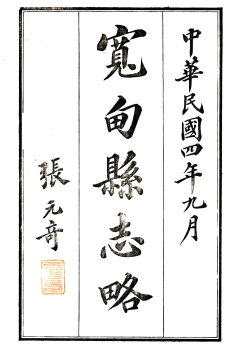 中華民國四年九月
寬甸縣志略
張元奇